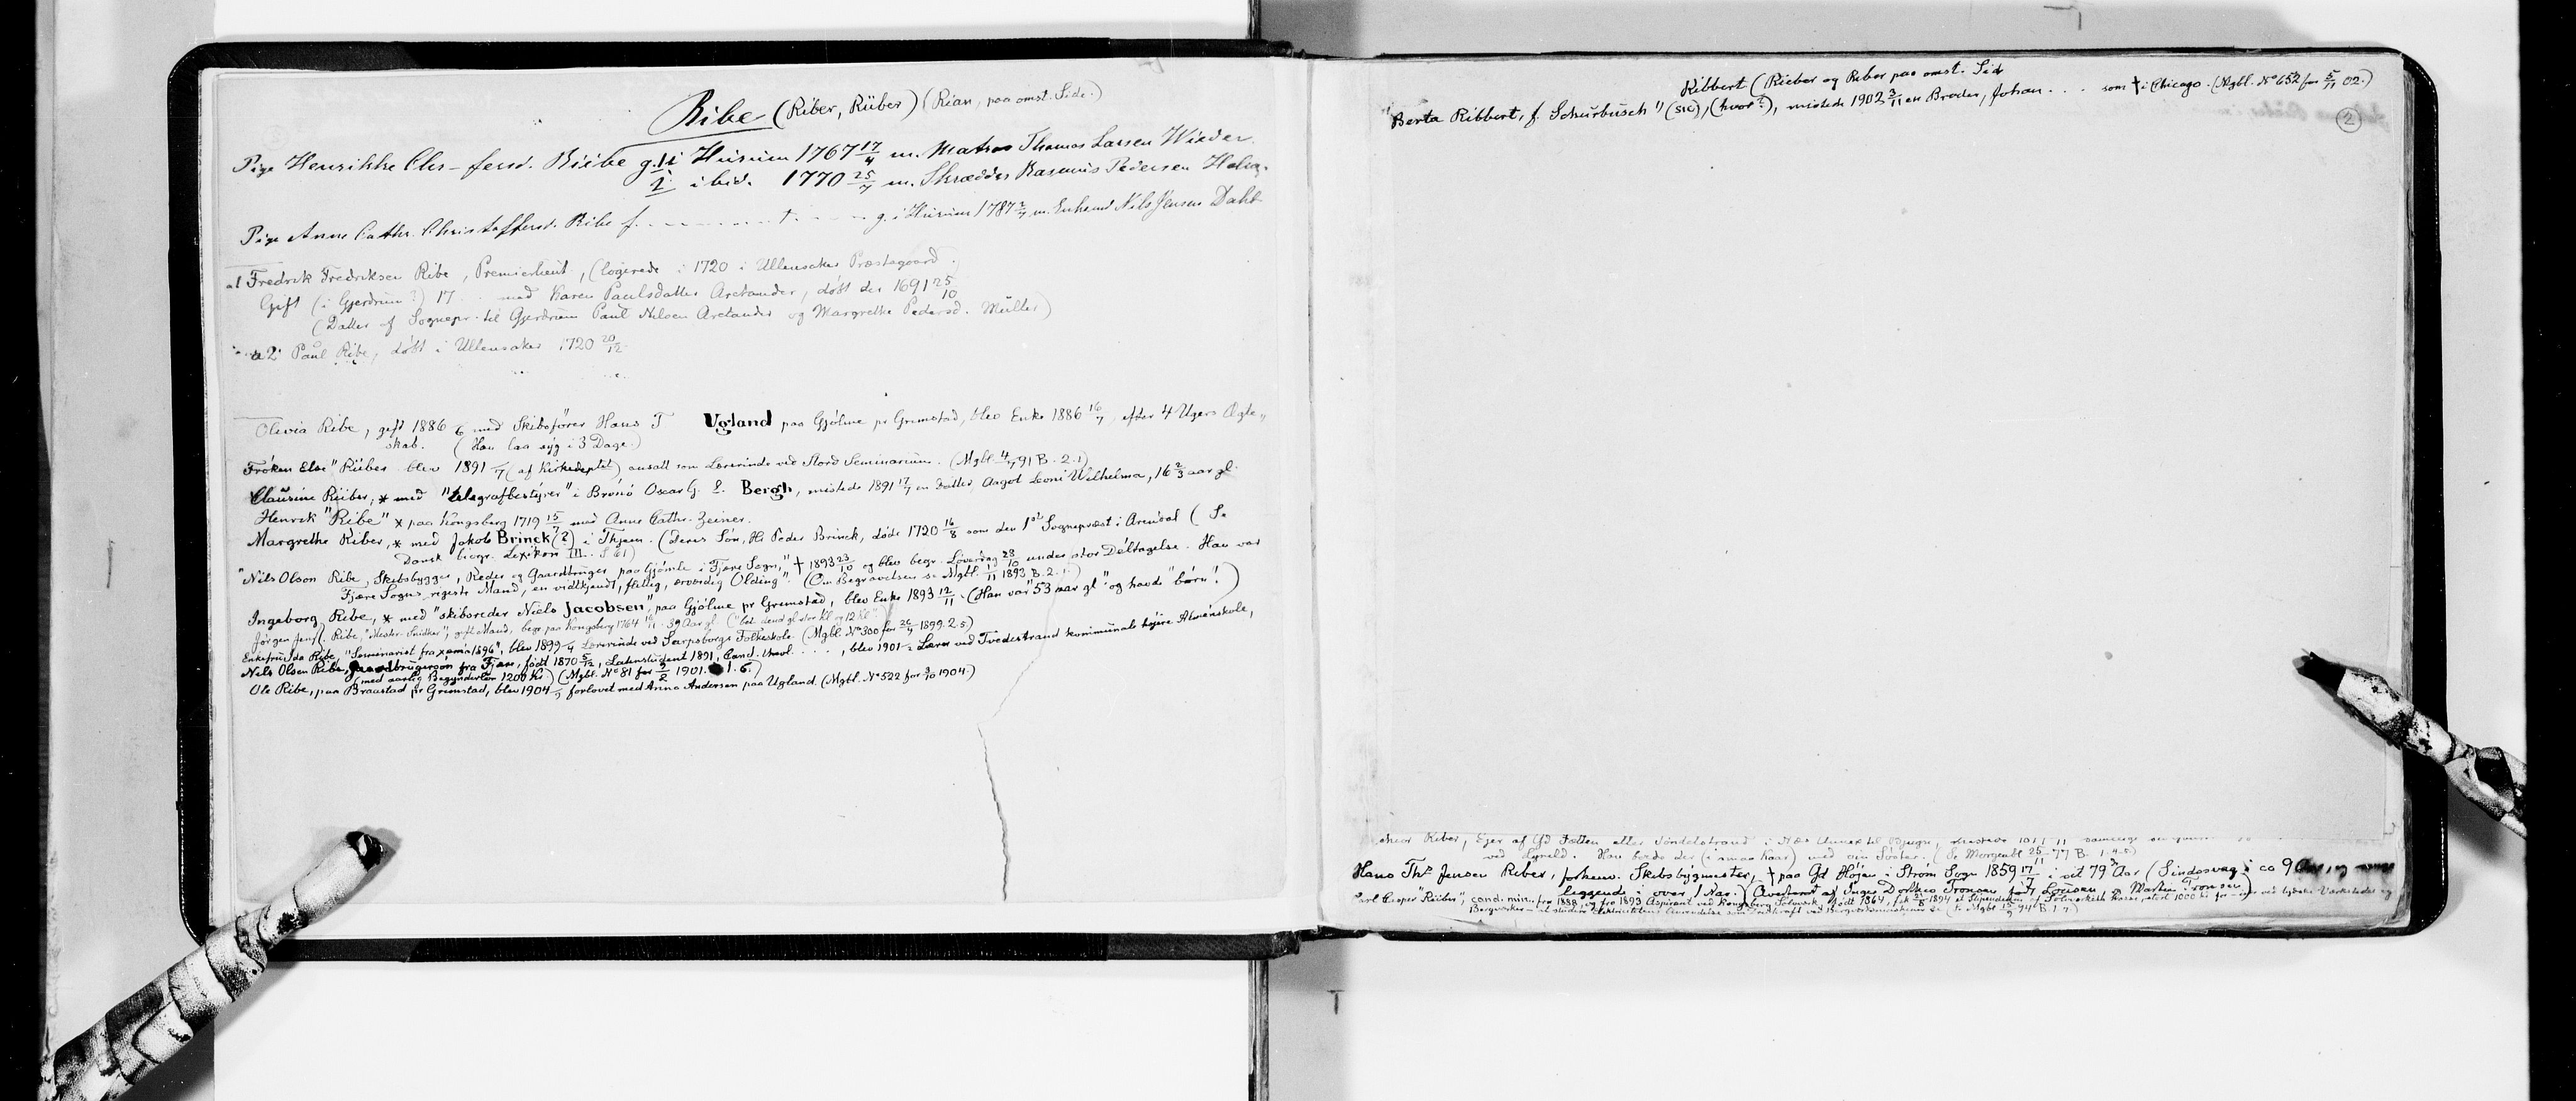 Ribe (Riber, Rüber) (Rian, paa omst. Side.)
Pige Henrikke Chr-fersd. Riibe g. 1: i Hurum 1767 17/4 m. Matros Thomas Larsen Wieder.
2: ibid. 1770 25/7 m. Skrædder Rasmus Pedersen
Pige Anne Cathr. Christoffersd. Ribe f. - - - - - - t. - - - g. i Hurum 1787 m. Enkemd Nils Jensen Dahl
a1 Fredrik Fredriksen Ribe, Premierlieut., (logerede i 1720 i Ullensaker Præstegaard.
Gift (i Gjerdrum?) 17 . . med Karen Paulsdatter Aretander, døbt der 1691 25/10
(Datter af Sognepr. til Gjerdrum Paul Nilsen Aretander og Margrethe Pedersd. Müller)
a2 Paul Ribe, døbt i Ullensaker 1720 20/12.
Olivia Ribe, gift 1886 6 med Skibsfører Hans T Ugland paa Gjølme pr Grimstad, blev Enke 1886 16/7, efter 4 Ugers Ægte„
skab. (Han laa syg i 3 Dage.)
Frøken Else "Rüber blev 1891 /7 (af Kirkedeptet) ansatt som Lærerinde ved Stord Seminarium. (Mgbl 4/7 91 B. 2.1)
Clausine Riiber, * med "telegrafbestyrer" i Brønø Oscar G. E. Bergh, mistede 1891 17/7 en Datter Aagot Leoni Wilhelma, 16 2/3 aar gl.
Henrik "Ribe" * paa Kongsberg 1719 15/7 med Anne Cathr. Zeiner.
Margrethe Riber, * med Jakob Brinck (?) i Thjem. (deres Søn, Hr Peder Brinck, døde 1720 16/8 som den 1ste Sognepræst i Arendal (Se
Dansk biogr. Lexikon III. S. 61)
"Nils Olson Ribe, Skibsbygger, Reder og Gaardbruger paa Gjømle i Fjære Sogn," † 1893 23/10 og blev begr. Løverdag 28/10 under stor Deltagelse. Han var
Fjære Sogns rigeste Mand, en vidtkjendt, flittig, ærværdig Olding". (Om Begravelsen se Mgbl. 1/11 1893 B. 2.1.)
Ingeborg Ribe, * med "skibsreder Niels Jacobsen", paa Gjølme pr Grimstad, blev Enke 1893 12/11. (Han var "53 aar gl" og havde "børn".)
Jørgen Jensf. Ribe, "Mester-Snidker", gift Mand, begr. paa Kongsberg 1764 16/11. 39 Aar gl. (
Enkefru Ida Ribe, "Seminarist fra xamia 1896", blev 1899 /4 Lærerinde ved Sarpsborgs Folkeskole (Mgbl. No 300 for 26/4 1899. 2.5)
Nils Olsen Ribe, Gaardbrugersøn fra Fjære, født 1870 5/12, Latinstudent 1891, Cand. theol. . . . . , blev 1901 /2 Lærer ved Tvedestrand kommunale højere Almenskole,
(med aarlig Begynderløn 1200 Kr.) (Mgbl. No 81 for 2 1901. 1. 6.)
Ole Ribe, paa Braastad pr Grimstad, blev 1904 /9 forlovet med Anna Andersen paa Ugland. (Mgbl. No 522 for 3/10 1904.)
Ribbert (Rieber og Reber paa omst. Side
"Berta Ribbert, f. Schurbusch" (sic), (hvor?), mistede 1902 3/11 en Broder, Johan . . . . som † i Chicago. (Mgbl. No 652 for 5/11 02.)
2
Riber, Ejer af Gd
ved Han boede der (i smaa Kaar) med sin Søster. (Se Morgenbl 25/11 77 B. 1.4-5)
Hans Ths Jensen Riber, forhenv. Skibsbygmester, † paa Gd Højen i Strøm Sogn 1859 17/7 i sit 79de Aar (Sindssvag i ca 9 Aar, og
liggende i over 1 Aar.) (Averteret af Inger Dorthea Tronsen født Louisen og Martin Tronsen)
Carl Casper "Riiber", cand. min. fra 1888, og fra 1893 Aspirant ved Kongsberg Sølvværk, født 1864, fik 1894 et Stipendium af Sølvværkets Kasse, stort 1000 Kr for
Bergværker - at studere Elektricitetens Anvendelse som Drivkraft ved Bergværksmaskiner &c (s. Mgbl 15/9 94 B 1.7)